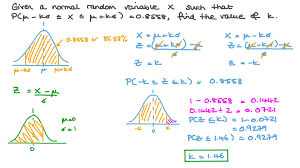 Given a normal random variable X such that
P(μ-kσ ≤ X ≤ μ+kσ) = 0.8558, find the value of k.
0.8558 or 85.58%
μ-kσ μ μ+kσ
Z = X-μ/σ
μ=0
σ=1
0
X = μ+kσ
Z = (μ+kσ)-μ/σ
Z = k
X = μ-kσ
Z = (μ-kσ)-μ/σ
Z = -k
P(-k ≤ Z ≤ k) = 0.8558
-k 0 k
1 - 0.8558 = 0.1442
0.1442 ÷ 2 = 0.0721
P(Z ≤ k) = 1 - 0.0721
= 0.9279
P(Z ≤ 1.46) = 0.9279
k = 1.46